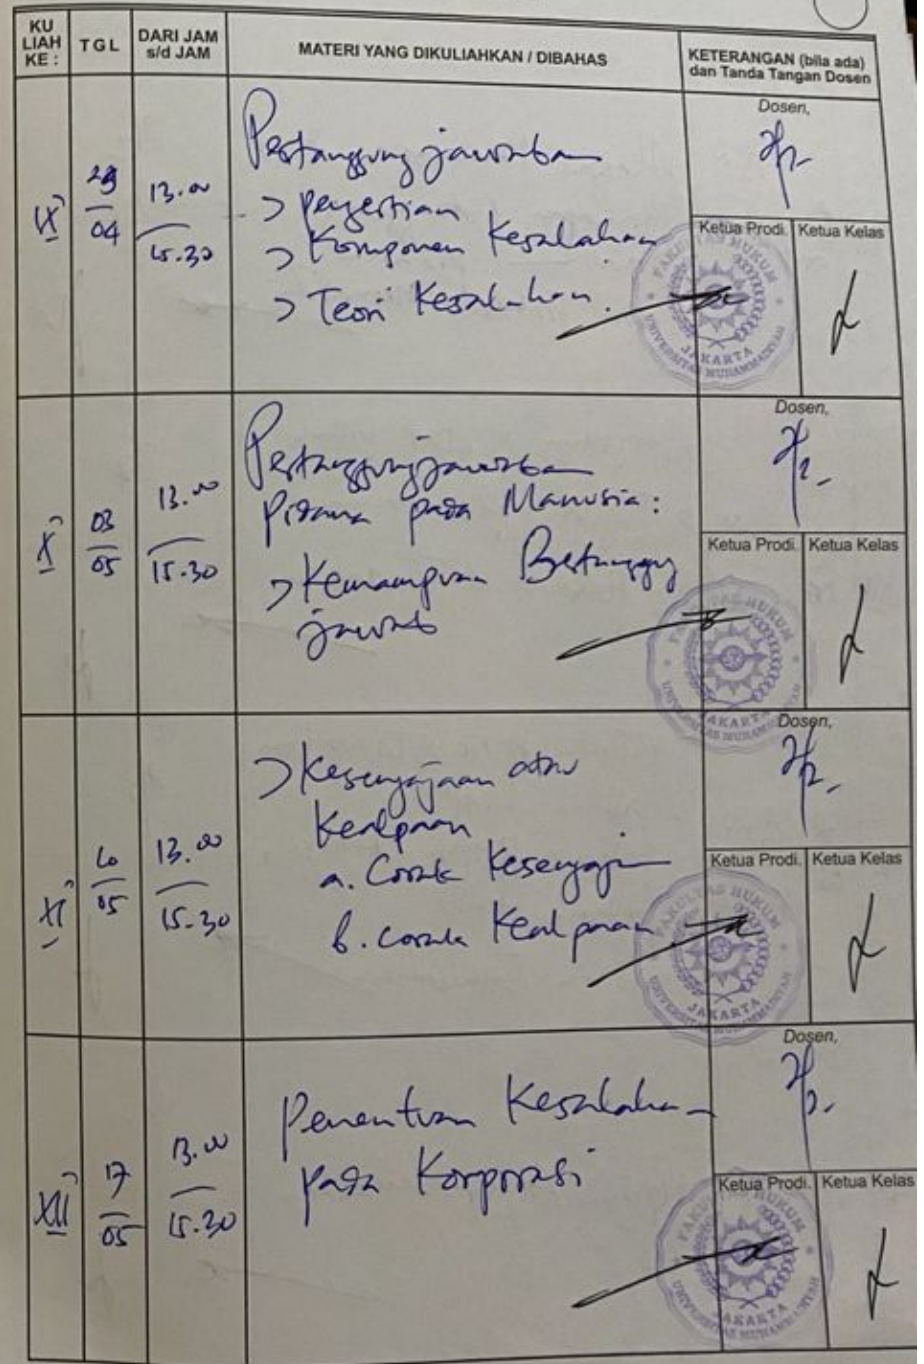 KU
LIAH
KE :
TGL
DARI JAM
s/d JAM
MATERI YANG DIKULIAHKAN / DIBAHAS
KETERANGAN (bila ada)
dan Tanda Tangan Dosen
IX
04
13.00
15.30
Pertanggung jawaban
> pengertian
> Komponen Kesalahan
> Teori Kesalahan.
Dosen,
Ketua Prodi.
Ketua Kelas
FAKULTAS HUKUM
UNIVERSITAS MUHAMMADIYAH
JAKARTA
X
03
05
13.00
15.30
Pertanggungjawaban
Pidana pada Manusia :
> Kemampuan Bertanggung
jawab
Dosen,
Ketua Prodi.
Ketua Kelas
FAKULTAS HUKUM
UNIVERSITAS MUHAMMADIYAH
JAKARTA
XI
10
05
13.00
15.30
> Kesengajaan atau
Kealpaan
a. Corak Kesengajaan
b. Corak Kealpaan
Dosen,
Ketua Prodi.
Ketua Kelas
FAKULTAS HUKUM
UNIVERSITAS MUHAMMADIYAH
JAKARTA
XII
17
05
13.00
15.30
Penentuan Kesalahan
pada Korporasi
Dosen,
Ketua Prodi.
Ketua Kelas
FAKULTAS HUKUM
UNIVERSITAS MUHAMMADIYAH
JAKARTA